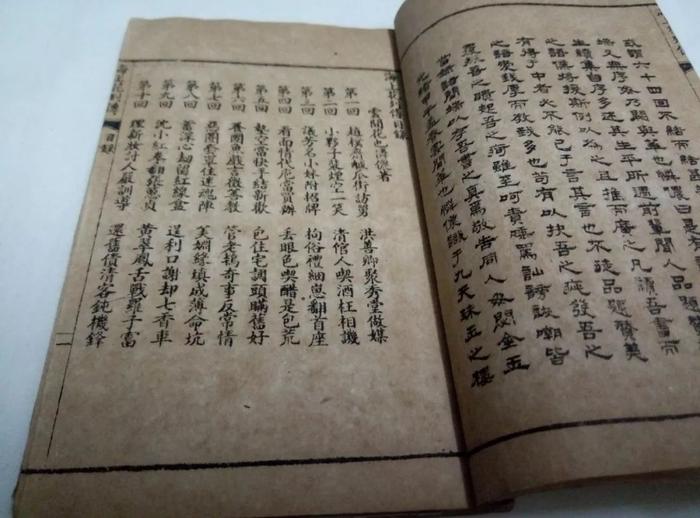 或謂六十四回不結而結
無序毋乃闕與華也憐儂曰是
集自序多述其生平所遇前輩聞人品題
也且推而廣之凡讀吾書而
之語儂將援斯例以為之也不徒品題贊美
有得于中者必不能已于言其言也
之語愛我厚而教我多也苟有以抉吾之疵發吾之
覆振吾之聵起吾之痾雖至呵責唾罵訕謗詼嘲皆
當錄諸簡端以存吾書之真焉敬告同人毋閟金玉
光緒甲午孟春雲間華也憐儂識于九天珠玉之樓
海上花列傳目錄
雲間花也憐儂著
第一回 趙樸齋鹹瓜街訪舅 洪善卿聚秀堂做媒
第二回 小夥子裝煙空一笑 清倌人喫酒枉相譏
第三回 議芳名小妹附招牌 拘俗禮細崽翻首座
第四回 看面情代庖當買辦 丟眼色喫醋是包荒
第五回 墊空當快手結新歡 包住宅調頭瞞舊好
第六回 養囡魚戲言徵善教 管老鴇奇事反常情
第七回 惡圈套罩住迷魂陣 美姻緣填成薄命坑
第八回 蓄深心劫留紅線盒 逞利口謝却七香車
第九回 沈小紅拳翻張蕙貞 黃翠鳳舌戰羅子富
第十回 理新妝討人嚴訓導 還舊債清客鈍機鋒
海上花列傳 目錄 一